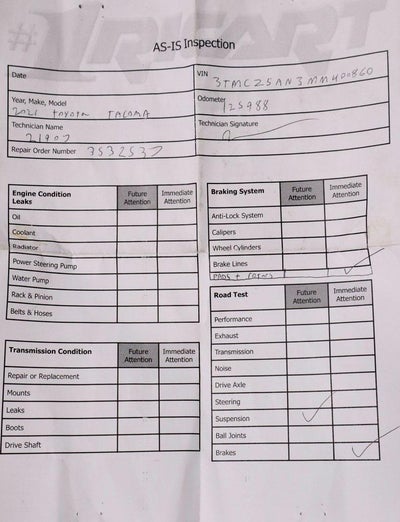 #1 RICART
AS-IS Inspection
Date
VIN 3TMCZ5AN3MM400860
Year, Make, Model 2021 TOYOTA TACOMA
Odometer 125988
Technician Name 21907
Technician Signature
Repair Order Number 3532537
Engine Condition Leaks Future Attention Immediate Attention
Oil
Coolant
Radiator
Power Steering Pump
Water Pump
Rack & Pinion
Belts & Hoses
Braking System Future Attention Immediate Attention
Anti-Lock System
Calipers
Wheel Cylinders
Brake Lines
PADS +
Transmission Condition Future Attention Immediate Attention
Repair or Replacement
Mounts
Leaks
Boots
Drive Shaft
Road Test Future Attention Immediate Attention
Performance
Exhaust
Transmission
Noise
Drive Axle
Steering
Suspension
Ball Joints
Brakes